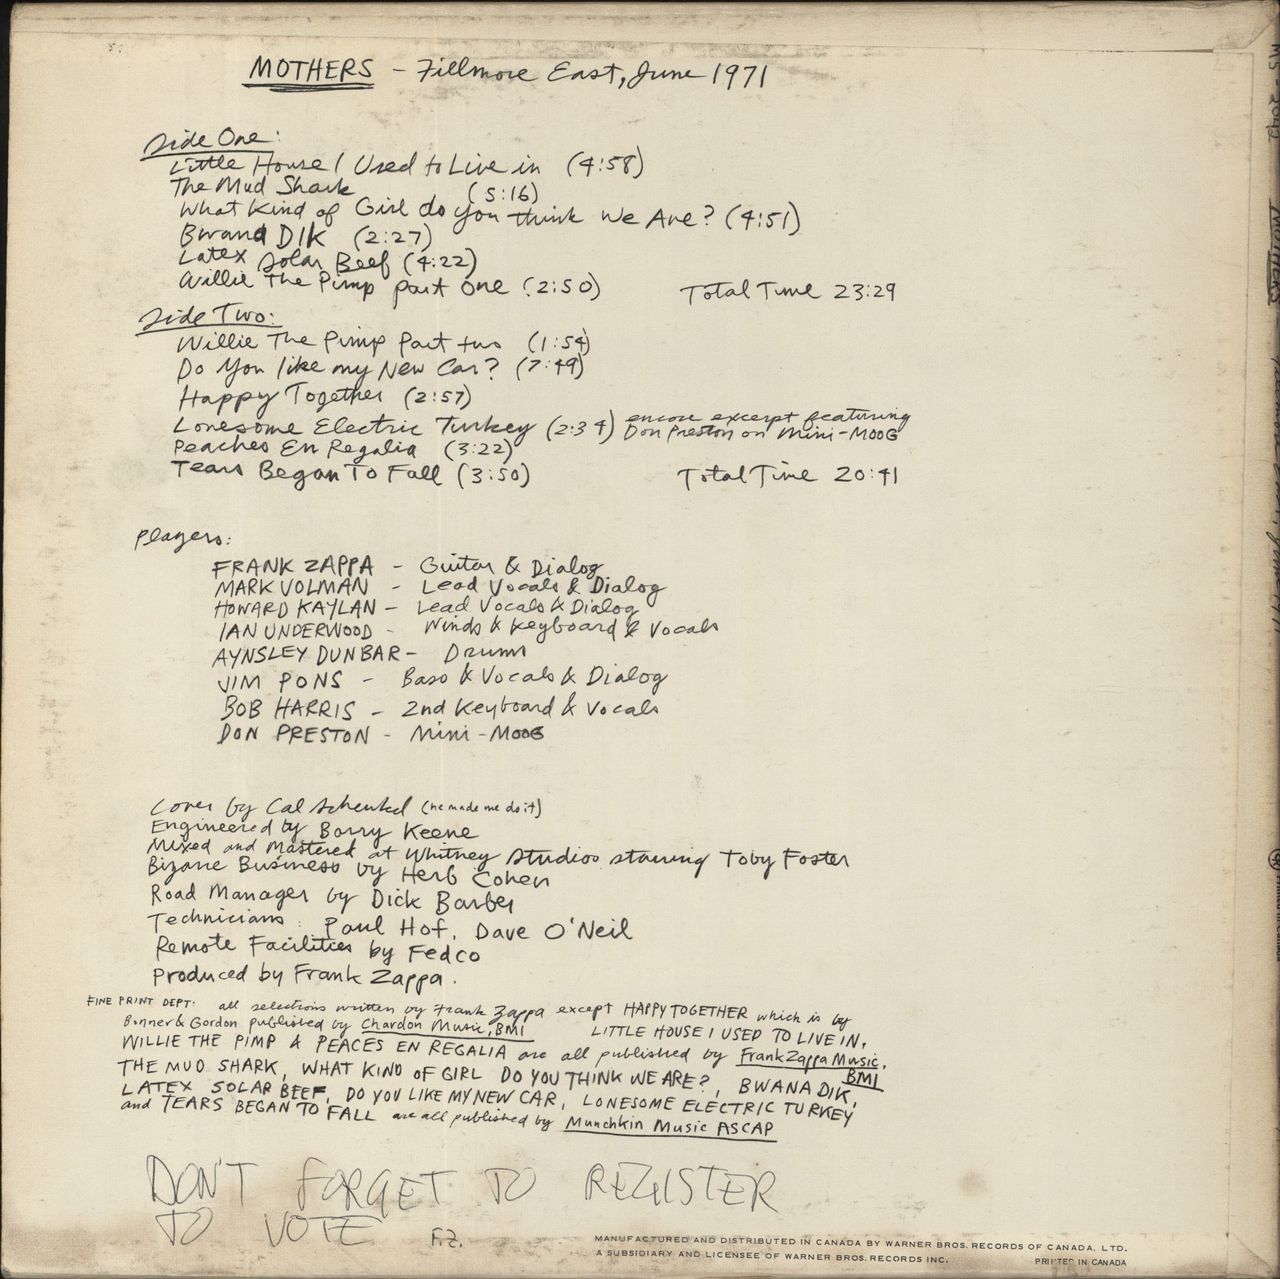 MOTHERS - Fillmore East, June 1971
Side One:
Little House I Used to Live in (4:58)
The Mud Shark (5:16)
What Kind of Girl do you think We Are? (4:51)
Bwana DIK (2:27)
Latex Solar Beef (4:22)
Willie The Pimp part One (2:50) Total Time 23:29
Side Two:
Willie The Pimp Part two (1:54)
Do You like my New Car? (7:49)
Happy Together (2:57)
Lonesome Electric Turkey (2:34) encore excerpt featuring Don Preston on Mini-MOOG
Peaches En Regalia (3:22)
Tears Began To Fall (3:50) Total Time 20:41
Players:
FRANK ZAPPA - Guitar & Dialog
MARK VOLMAN - Lead Vocals & Dialog
HOWARD KAYLAN - Lead Vocals & Dialog
IAN UNDERWOOD - Winds & Keyboard & Vocals
AYNSLEY DUNBAR - Drums
JIM PONS - Bass & Vocals & Dialog
BOB HARRIS - 2nd Keyboard & Vocals
DON PRESTON - Mini-MOOG
Cover by Cal Schenkel (he made me do it)
Engineered by Barry Keene
Mixed and Mastered at Whitney Studios starring Toby Foster
Bizarre Business by Herb Cohen
Road Manager by Dick Barber
Technicians: Paul Hof, Dave O'Neil
Remote Facilities by Fedco
Produced by Frank Zappa.
FINE PRINT DEPT: all selections written by Frank Zappa except HAPPY TOGETHER which is by
Bonner & Gordon published by Chardon Music, BMI LITTLE HOUSE I USED TO LIVE IN,
WILLIE THE PIMP & PEACES EN REGALIA are all published by Frank Zappa Music, BMI
THE MUD SHARK, WHAT KIND OF GIRL DO YOU THINK WE ARE?, BWANA DIK,
LATEX SOLAR BEEF, DO YOU LIKE MY NEW CAR, LONESOME ELECTRIC TURKEY
and TEARS BEGAN TO FALL are all published by Munchkin Music ASCAP
DON'T FORGET TO REGISTER
TO VOTE F.Z.
MANUFACTURED AND DISTRIBUTED IN CANADA BY WARNER BROS. RECORDS OF CANADA, LTD.
A SUBSIDIARY AND LICENSEE OF WARNER BROS. RECORDS INC. PRINTED IN CANADA
MS-2042 MOTHERS